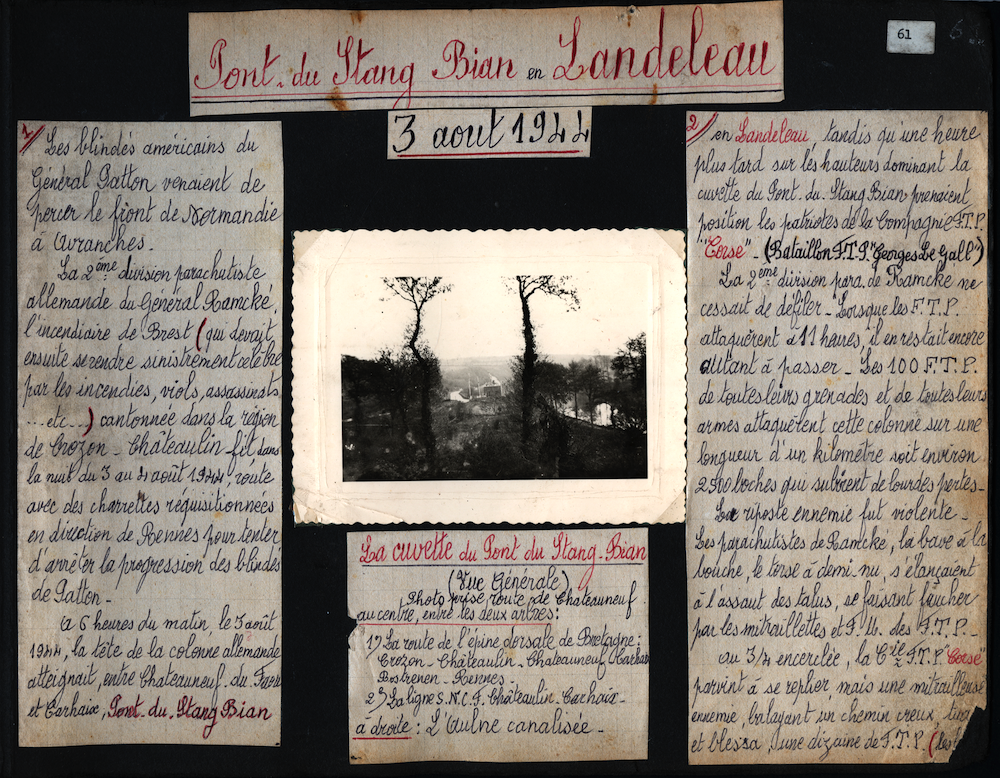 61
Pont. du Stang Bian en Landeleau
3 aout 1944
1/
Les blindés américains du
Général Patton venaient de
percer le front de Normandie
à Avranches.
La 2ème division parachutiste
allemande du Général Ramcké,
l'incendiaire de Brest (qui devait
ensuite se rendre sinistrement célèbre
par les incendies, viols, assassinats,
...etc...) cantonnée dans la région
de Crozon - Châteaulin fit dans
la nuit du 3 au 4 août 1944, route
avec des charrettes réquisitionnées
en direction de Rennes pour tenter
d'arrêter la progression des blindés
de Patton -
à 6 heures du matin, le 3 août
1944, la tête de la colonne allemande
atteignait, entre Chateauneuf. du. Faou
et Carhaix, Pont. du. Stang Bian
La cuvette du Pont du Stang-Bian
(Vue Générale)
Photo prise route de Chateauneuf
au centre, entre les deux arbres:
1°) La route de l'épine dorsale de Bretagne:
Crozon - Châteaulin - Chateauneuf Carhaix
Rostrenen - Rennes -
2°) La ligne S.N.C.F. Châteaulin - Carhaix -
à droite: L'Aulne canalisée -
2/ en Landeleau, tandis qu'une heure
plus tard sur les hauteurs dominant la
cuvette du Pont. du. Stang Bian prenaient
position les patriotes de la Compagnie F.T.P.
"Corse" - (Bataillon F.T.P. "Georges Le Gall")
La 2ème division para. de Ramcke ne
cessait de défiler - Lorsque les F.T.P.
attaquèrent à 11 heures, il en restait encore
autant à passer - Les 100 F.T.P.
de toutes leurs grenades et de toutes leurs
armes attaquèrent cette colonne sur une
longueur d'un kilomètre soit environ
2500 boches qui subirent de lourdes pertes -
La riposte ennemie fut violente -
Les parachutistes de Ramcke, la bave à la
bouche, le torse à demi nu, s'élançaient
à l'assaut des talus, se faisant faucher
par les mitraillettes et F.M. des F.T.P. -
au 3/4 encerclée, la Cie F.T.P. "Corse"
parvint à se replier mais une mitrailleuse
ennemie, balayant un chemin creux, tua
et blessa, une dizaine de F.T.P. (